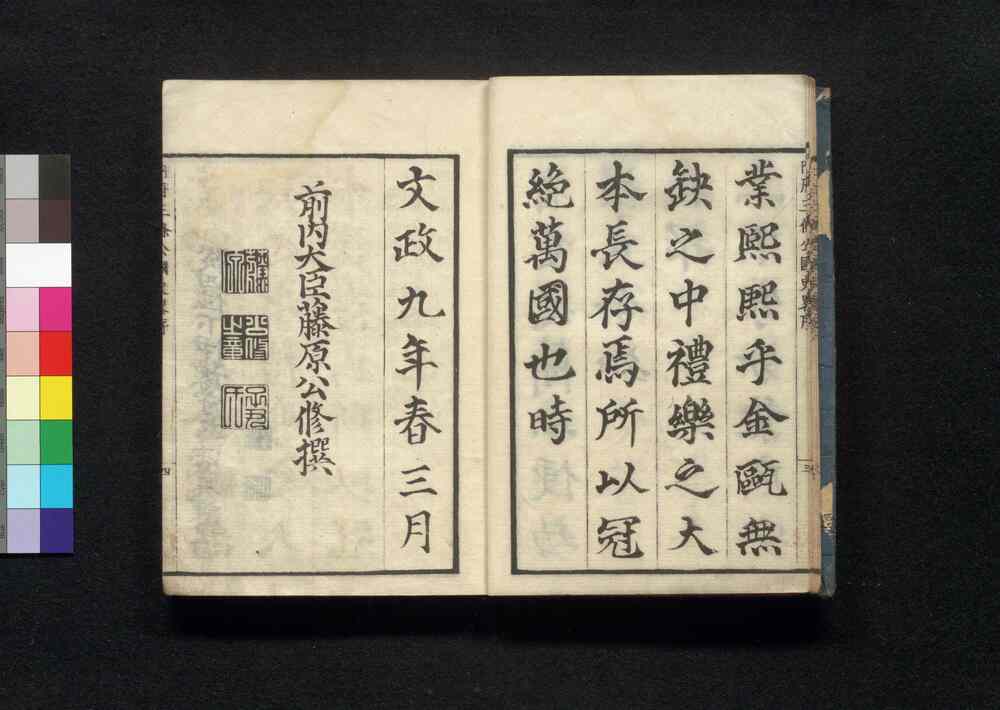 業熙熙乎金甌無
缺之中禮樂之大
本長存焉所以冠
絶萬國也時
文政九年春三月
前内大臣藤原公修撰